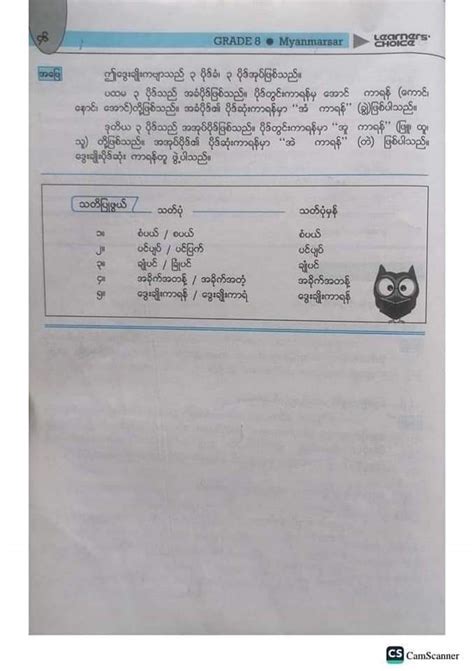 ၄၆ GRADE 8 ● Myanmarsar LEARNERS' CHOICE
အဖြေ ဤဒွေးချိုးကဗျာသည် ၃ ပိုဒ်ခံ၊ ၃ ပိုဒ်အုပ်ဖြစ်သည်။
ပထမ ၃ ပိုဒ်သည် အခံပိုဒ်ဖြစ်သည်။ ပိုဒ်တွင်းကာရန်မှ အောင် ကာရန် (ကောင်း
နောင်း အောင်)တို့ဖြစ်သည်။ အခံပိုဒ်၏ ပိုဒ်ဆုံးကာရန်မှာ "အံ ကာရန်" (ရွှံ)ဖြစ်ပါသည်။
ဒုတိယ ၃ ပိုဒ်သည် အအုပ်ပိုဒ်ဖြစ်သည်။ ပိုဒ်တွင်းကာရန်မှာ "အူ ကာရန်" (ဖြူ၊ ထူ၊
သူ) တို့ဖြစ်သည်။ အအုပ်ပိုဒ်၏ ပိုဒ်ဆုံးကာရန်မှာ "အဲ ကာရန်" (တဲ) ဖြစ်ပါသည်။
ဒွေးချိုးပိုဒ်ဆုံး ကာရန်တူ ဖွဲ့ပါသည်။
သတိပြုဖွယ် သတ်ပုံ သတ်ပုံမှန်
၁။ စံပယ် / စပယ် စံပယ်
၂။ ပင်ပျပ် / ပင်ပြက် ပင်ပျပ်
၃။ ချုံပင် / ခြုံပင် ချုံပင်
၄။ အခိုက်အတန့် / အခိုက်အတံ့ အခိုက်အတန့်
၅။ ဒွေးချိုးကာရန် / ဒွေးချိုးကာရံ ဒွေးချိုးကာရန်
CS CamScanner